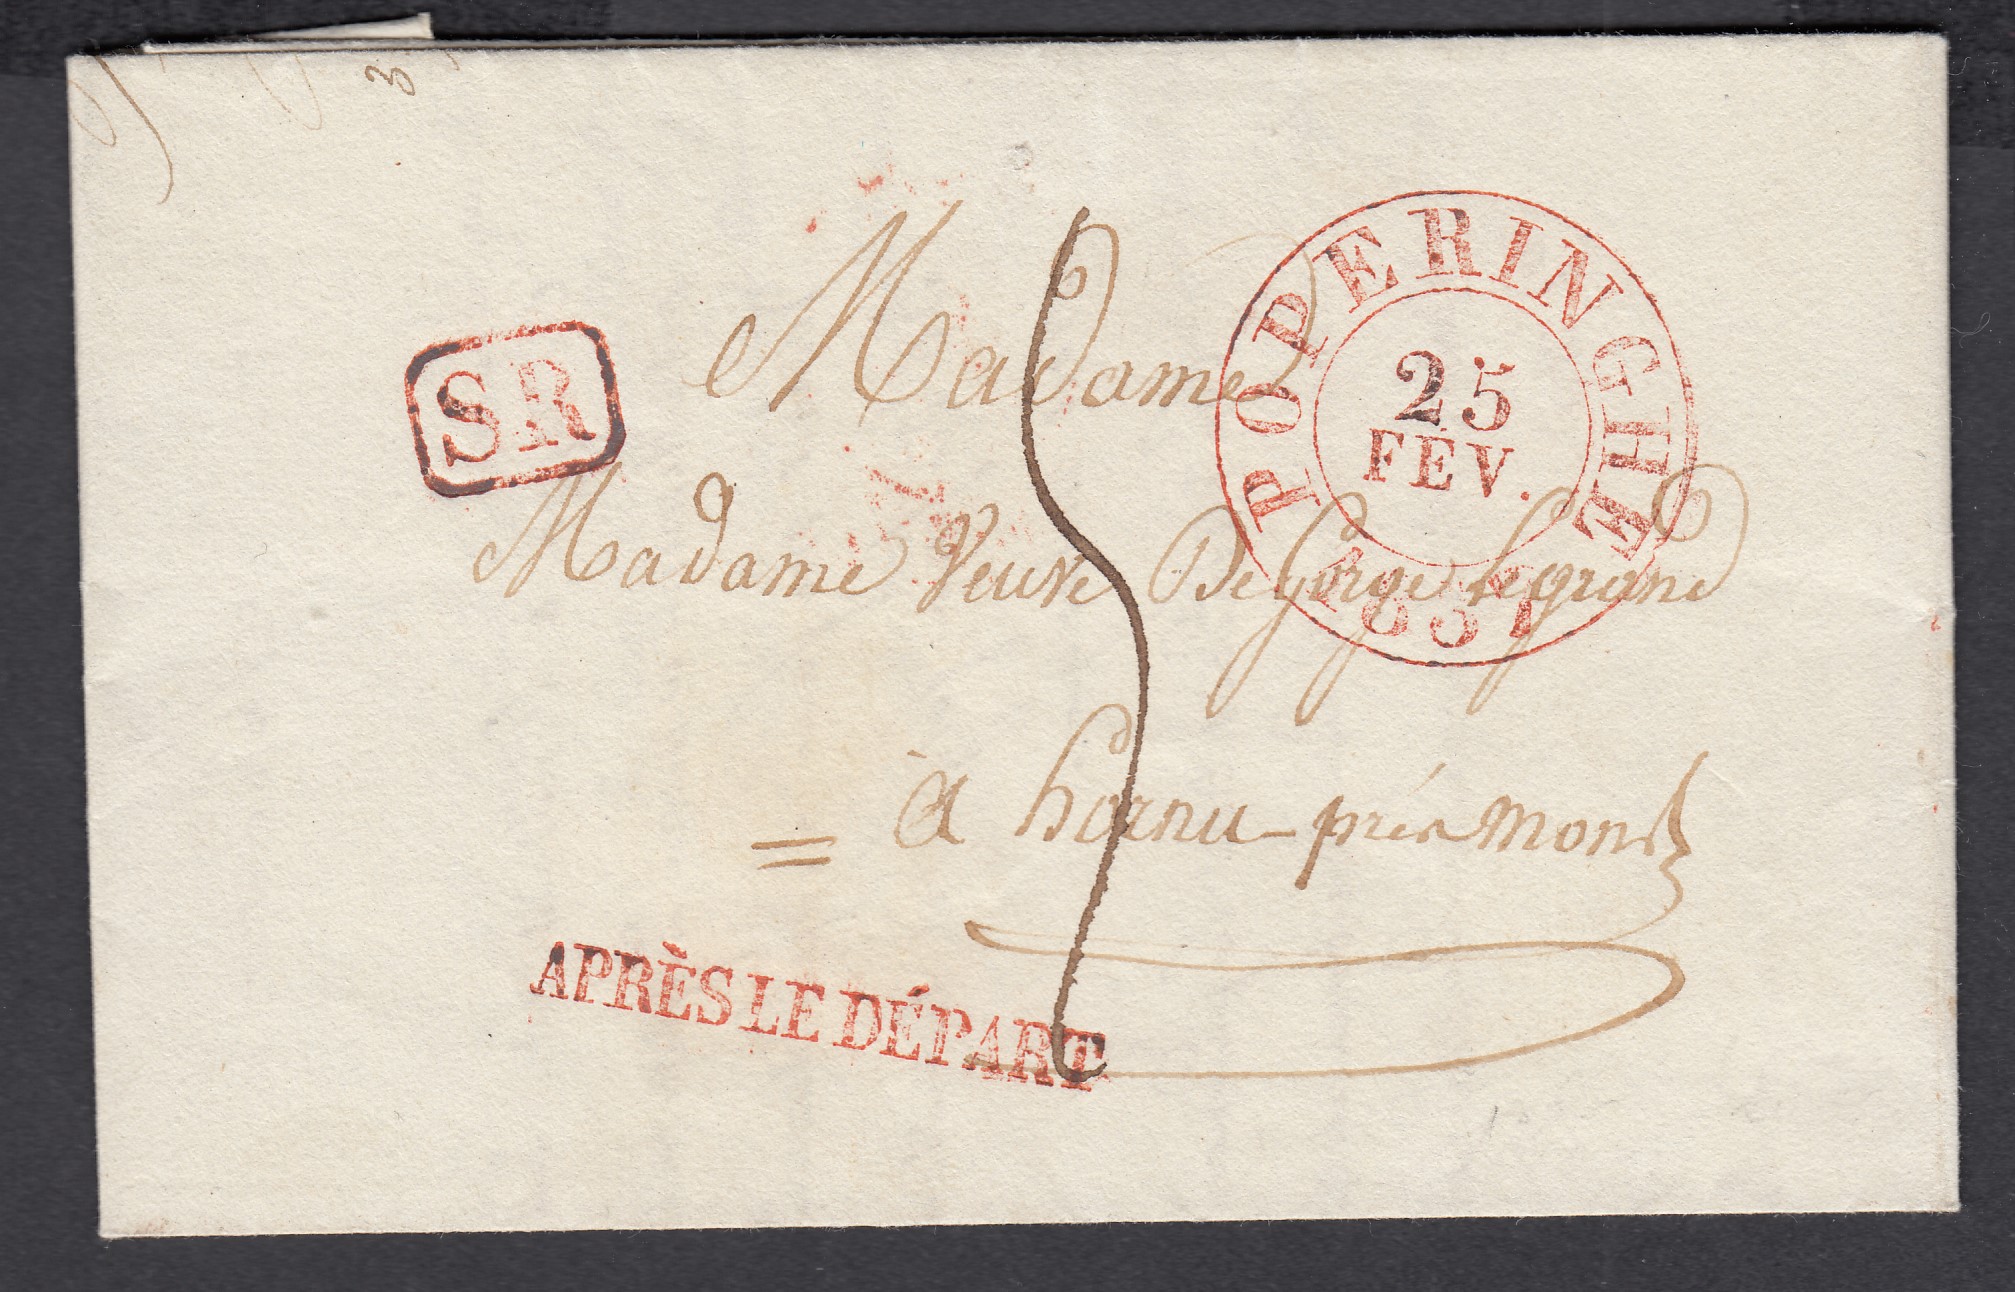 3
Madame
SR
POPERINGHE
25
FEV.
1837
Madame Veuve DeGorge Legrand
a hornu - près mons
=
APRÈS LE DÉPART